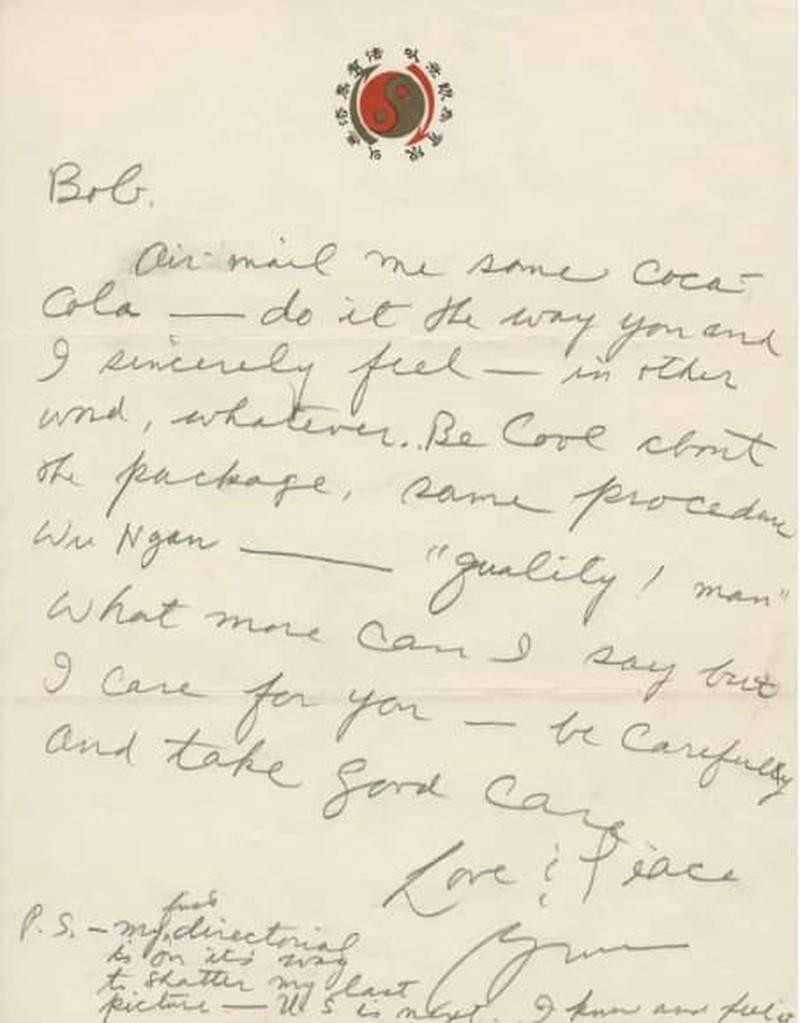 以無法為有法
以無限為有限
Bob.
Air mail me some Coca-
Cola — do it the way you and
I sincerely feel — in other
word, whatever.. Be Cool about
the package, same procedure
Wu Ngan — "quality! man"
What more can I say but
I care for you — be carefully
and take good care
Love & Peace
Bruce
P.S. – my first directorial
is on it's way
to shatter my last
picture — U S is next. I know and feel